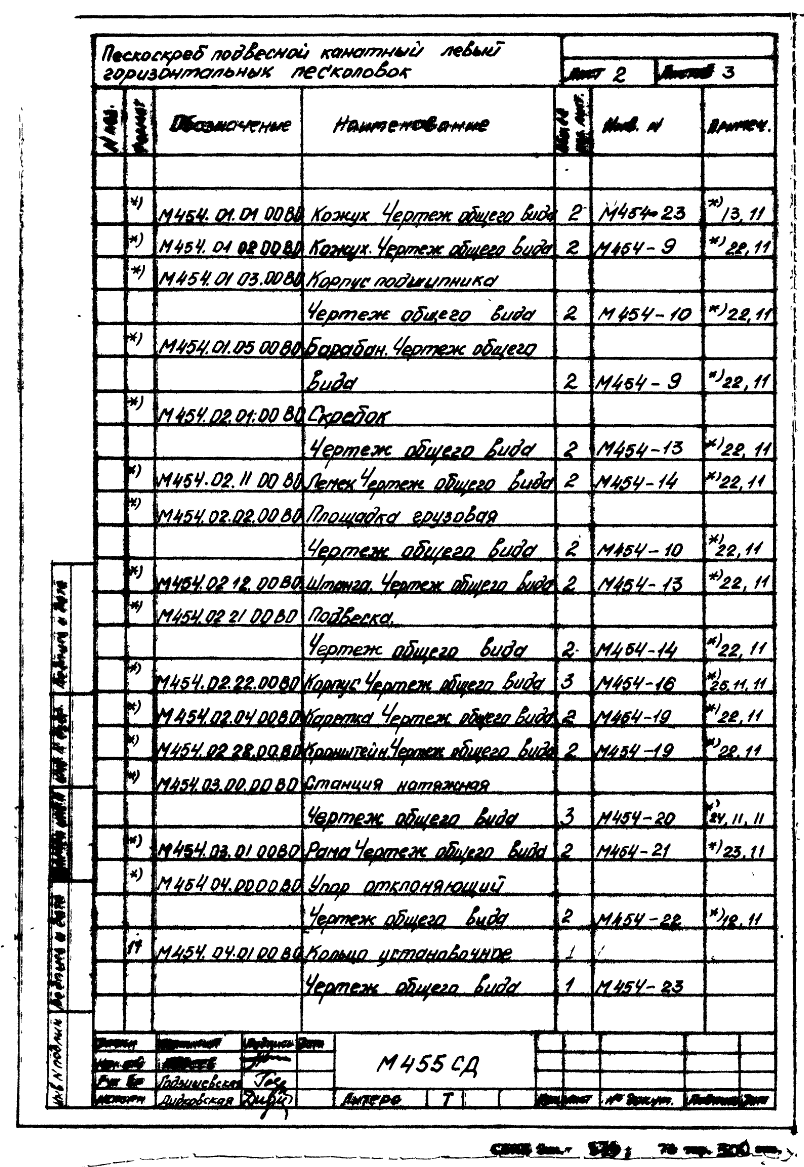 Пескоскреб подвесной канатный левый
горизонтальных песколовок
Лист 2 Листов 3
N поз. Формат Обозначение Наименование Инв. N Примеч.
*) М454.01.01 00 В0 Кожух Чертеж общего вида 2 М454-23 *)13,11
*) М454.01 02 00 В0 Кожух. Чертеж общего вида 2 М454-9 *)22,11
*) М454.01 03.00 В0 Корпус подшипника
Чертеж общего вида 2 М454-10 *)22,11
*) М454.01.05 00 В0 Барабан. Чертеж общего
вида 2 М454-9 *)22,11
*) М454.02.01.00 В0 Скребок
Чертеж общего вида 2 М454-13 *)22,11
*) М454.02.11 00 В0 Лемех Чертеж общего вида 2 М454-14 *)22,11
*) М454.02.02.00 В0 Площадка грузовая
Чертеж общего вида 2 М454-10 *)22,11
*) М454.02 12.00 В0 Штанга. Чертеж общего вида 2 М454-13 *)22,11
*) М454.02 21 00 В0 Подвеска.
Чертеж общего вида 2 М454-14 *)22,11
*) М454.02.22.00 В0 Корпус Чертеж общего вида 3 М454-16 *)25,11,11
*) М454.02.04.00 В0 Каретка Чертеж общего вида 2 М454-19 *)22,11
*) М454.02 28.00.В0 Кронштейн. Чертеж общего вида 2 М454-19 *)22,11
*) М454.03.00.00 В0 Станция натяжная
Чертеж общего вида 3 М454-20 *)24,11,11
*) М454.03.01 00 В0 Рама Чертеж общего вида 2 М454-21 *)23,11
*) М454 04.00 00 В0 Упор отклоняющий
Чертеж общего вида 2 М454-22 *)12,11
11 М454.04.01 00 В0 Кольцо установочное 1
Чертеж общего вида 1 М454-23
Подпись и дата
Подпись и дата
Инв N подлин
Подпись Дата
Рук бр Годзишевская
Дидковская
М455 СД
Литера Т
№ докум.